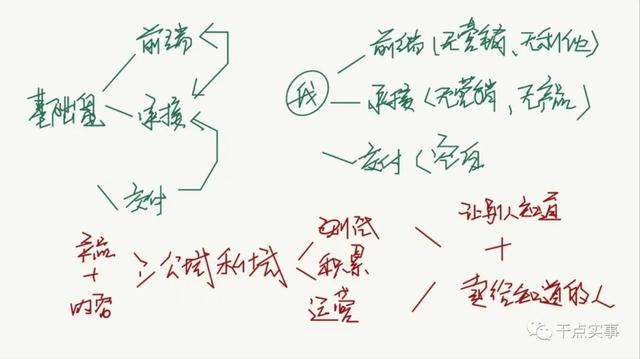 基础量
前端
承接
交付
我
前端(无营销、无利他)
承接(无营销、无产品)
交付
产品
+
内容
公域私域
测试
积累
运营
让别人知道
+
卖给知道的人
干点实事